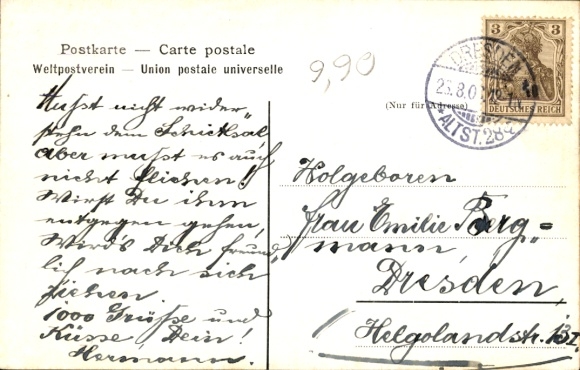 Postkarte — Carte postale
Weltpostverein — Union postale universelle
9,90
(Nur für Adresse)
3 3
DEUTSCHES REICH
DRESDEN
ALTST. 28
Mußt nicht wider„
stehn dem Schicksal
aber mußt es auch
nicht fliehen!
Wirst Du ihm
entgegen gehen,
Wird's Dich freund„
lich nach sich
ziehen.
1000 Grüße und
Küsse Dein!
Hermann.
Holgeboren
Frau Emilie Berg=
mann,
Dresden,
Helgolandstr. 13